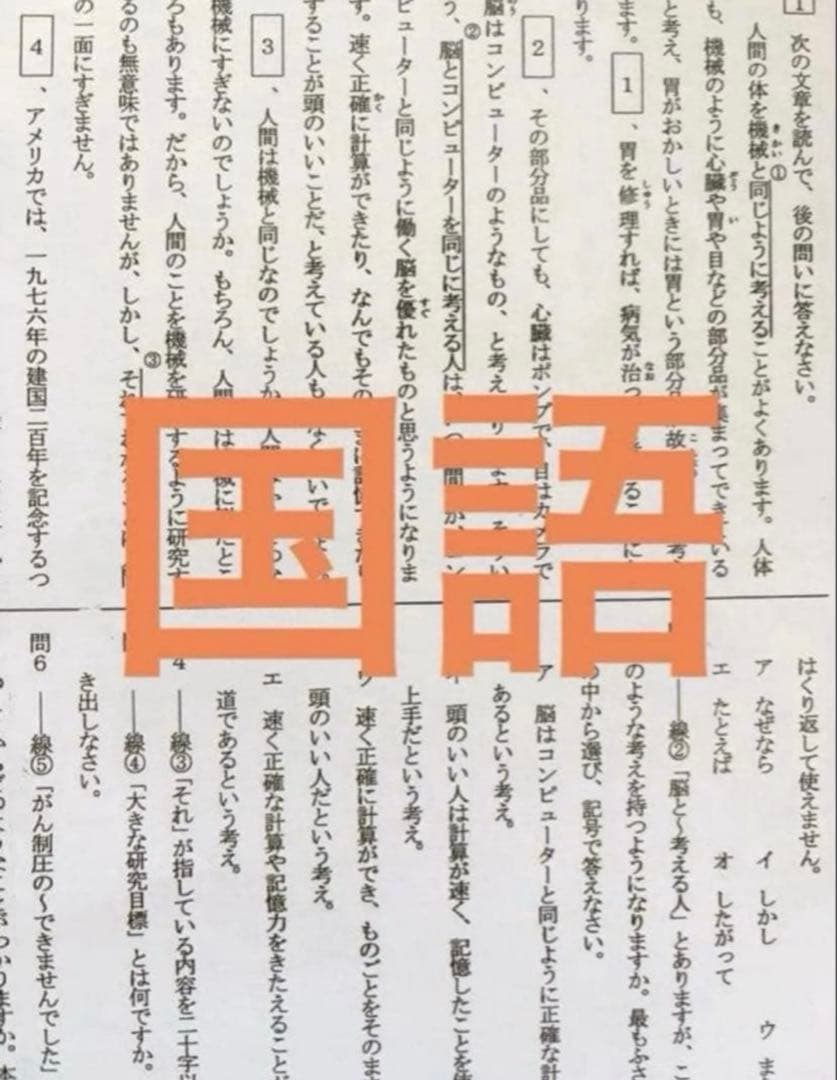 1 次の文章を読んで、後の問いに答えなさい。
人間の体を機械と同じように考えることがよくあります。人体
も、機械のように心臓や胃や目などの部分品が集まってできている
と考え、胃がおかしいときには胃という部分
ます。 1 、胃を修理すれば、病気が治っ
ります。
2 、その部分品にしても、心臓はポンプで、目はカメラで
脳はコンピューターのようなもの、と考え
う、脳とコンピューターを同じに考える人は、
ピューターと同じように働く脳を優れたものと思うようになりま
す。速く正確に計算ができたり、なんでもその
することが頭のいいことだ、と考えている人も
3 、人間は機械と同じなのでしょうか
機械にすぎないのでしょうか。もちろん、人間
ろもあります。だから、人間のことを機械を研究するように研究す
るのも無意味ではありませんが、しかし、それ
の一面にすぎません。
4 、アメリカでは、一九七六年の建国二百年を記念するつ
国語
はくり返して使えません。
ア なぜなら イ しかし ウ ま
エ たとえば オ したがって
――線②「脳と〜考える人」とありますが、こ
のような考えを持つようになりますか。最もふさ
の中から選び、記号で答えなさい。
ア 脳はコンピューターと同じように正確な計
あるという考え。
イ 頭のいい人は計算が速く、記憶したことを
上手だという考え。
ウ 速く正確に計算ができ、ものごとをそのま
頭のいい人だという考え。
エ 速く正確な計算や記憶力をきたえること
道であるという考え。
4 ――線③「それ」が指している内容を二十字
――線④「大きな研究目標」とは何ですか。
き出しなさい。
問6 ――線⑤「がん制圧の〜できませんでした」